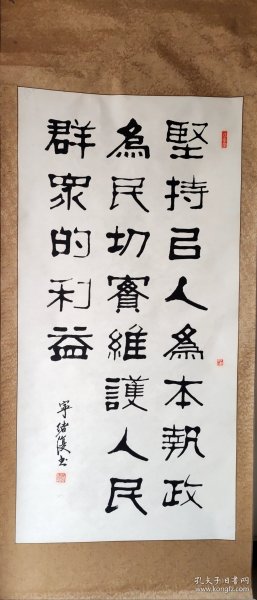 堅持㠯人為本執政
為民切實維護人民
群眾的利益
寧緒俊书
孔夫子旧书网
www.kongfz.com